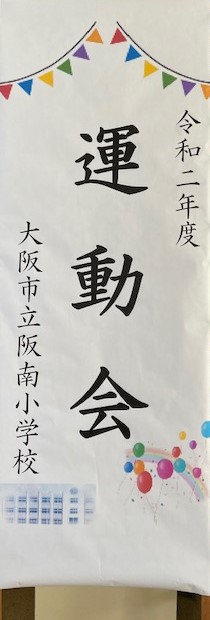 令和二年度
運動会
大阪市立阪南小学校